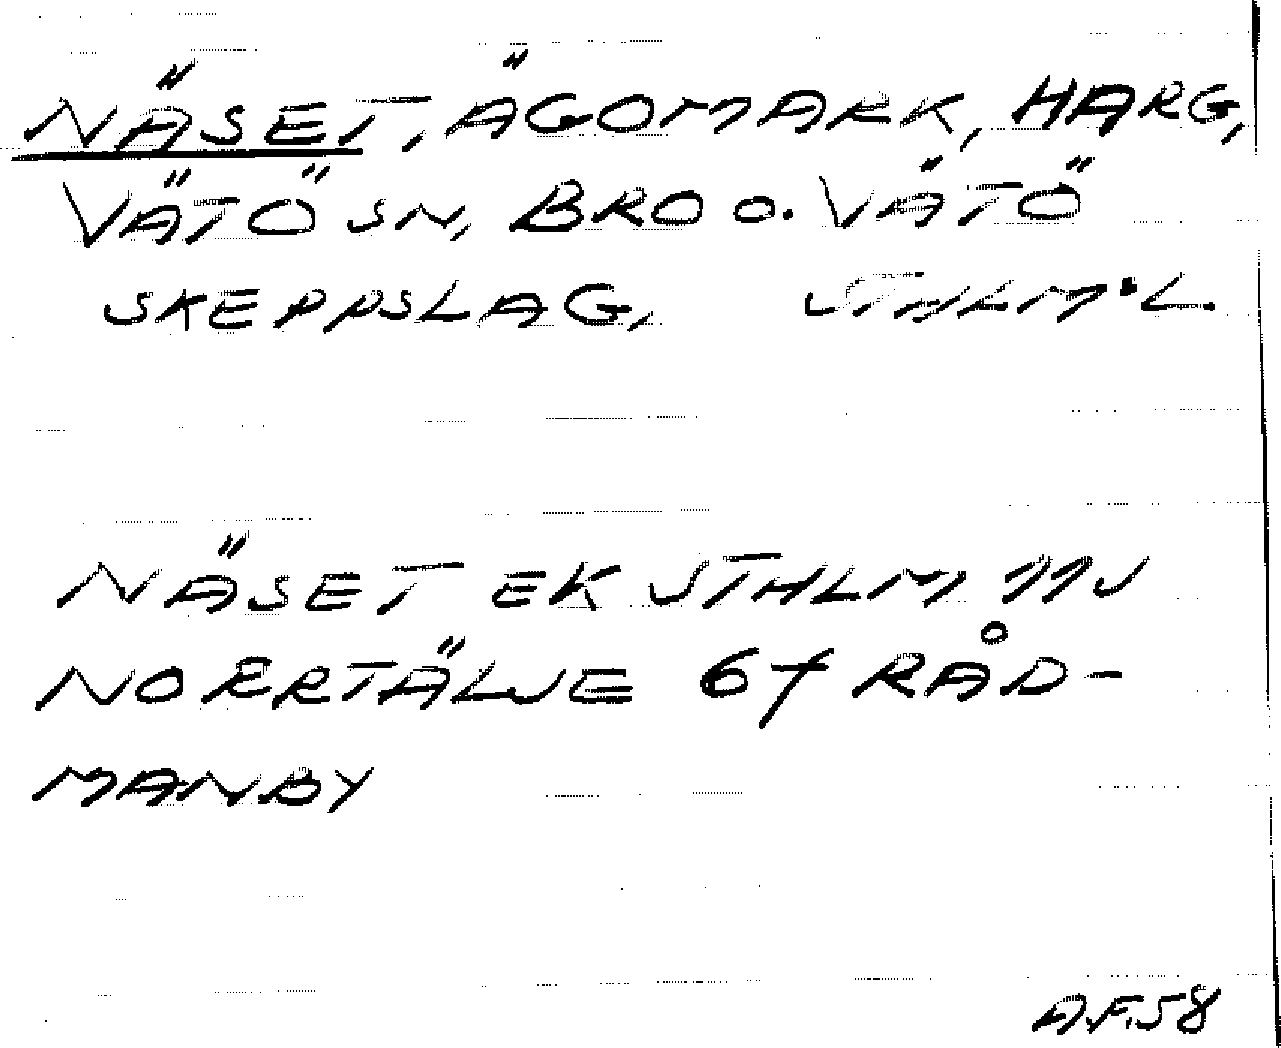 NÄSET, ÄGOMARK, HARG,
VÄTÖ SN, BRO O. VÄTÖ
SKEPPSLAG, STHLM·L.
NÄSET EK STHLM 11J
NORRTÄLJE 67 RÅD-
MANBY
A.F.58